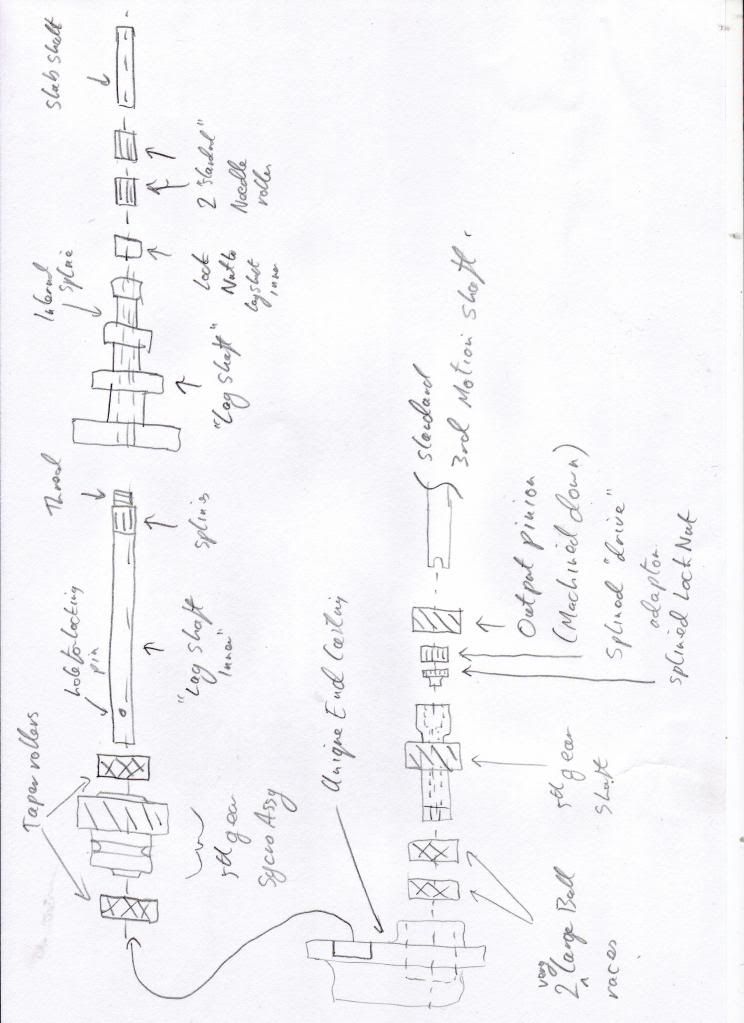 Taper rollers
hole for locking
pin
Thread
Internal
spline
Slab shaft
5th gear
Sycro Assy
"Lag Shaft
Inner"
splines
"Lag Shaft"
Lock
Nut to
layshaft
inner
2 "standard"
Needle
roller
Unique End Casting
2 very large Ball
races
5th gear
shaft
Output pinion
(Machined down)
Splined "drive"
adaptor
splined Lock Nut
Standard
3rd Motion shaft.